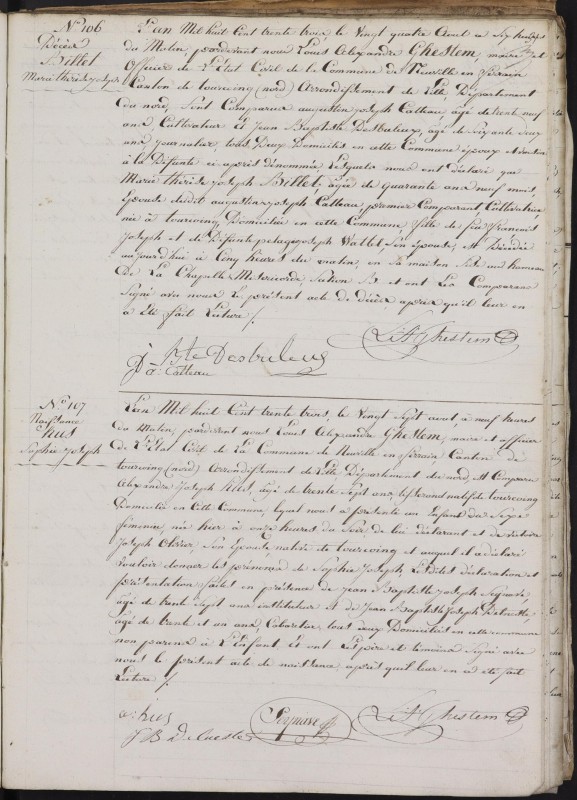 N° 106
Décès
Billet
Marie thérèse joseph
L'an Mil huit Cent trente trois, le Vingt quatre Aout à Sept heures
du Matin, pardevant nous Louis Alexandre Ghestem, maire et
officier de L'Etat Civil de la Commune de Neuville en ferrain
Canton de tourcoing (nord) Arrondissement de Lille, Département
du nord, Sont Comparus augustin joseph Catteau, âgé de trente neuf
ans Cultivateur et Jean Baptiste Desbuleux, âgé de soixante deux
ans journalier, tous Deux Domiciliés en cette Commune époux et
à la Défunte ci après dénommée, Lesquels nous ont déclaré que
Marie thérèse joseph Billet, âgée de quarante ans neuf mois,
Epouse dudit augustin joseph Catteau, premier Comparant Cultivatrice
née à tourcoing, Domiciliée en cette Commune fille de feu françois
Joseph et de Défunte pelagie joseph Wattel Son épouse, est Décédée
aujourd'hui à Cinq heures du matin, en Sa maison Sise au hameau
De La Chapelle Misericorde, Section B et ont Les Comparans
Signé avec nous Le présent acte de décès après qu'il leur en
a Eté fait Lecture /.
L: A Ghestem
J Bte Desbuleux
a: Catteau
N° 107
Naissance
hus
Sophie Joseph
L'an Mil huit Cent trente trois, le Vingt Sept aout, à neuf heures
du Matin, pardevant nous Louis Alexandre Ghestem, maire et officier
de L'Etat Civil de La Commune de Neuville en ferrain Canton de
tourcoing (nord) Arrondissement de Lille Département du nord, Est Comparu
Alexandre Joseph hus, âgé de trente Sept ans, tisserand natif de tourcoing
Domicilié en Cette Commune, lequel nous a présenté un Enfant du Sexe
feminin, née hier à onze heures du Soir, de lui déclarant et de
Joseph Olivier, Son Epouse native de tourcoing et auquel il a déclaré
vouloir donner les prénoms de Sophie Joseph, Lesdites déclaration et
présentation faites en présence de jean Baptiste joseph Seynave,
âgé de trente Sept ans instituteur et de Jean Baptiste Joseph Delneste,
âgé de trente et un ans, Cabaretier tous deux Domiciliés en cette commune
non parens à L'Enfant, Et ont Les père et témoins Signé avec
nous le présent acte de naissance, après qu'il leur en a été fait
Lecture /.
a: hus
Seynave
L: A Ghestem
J B Delneste